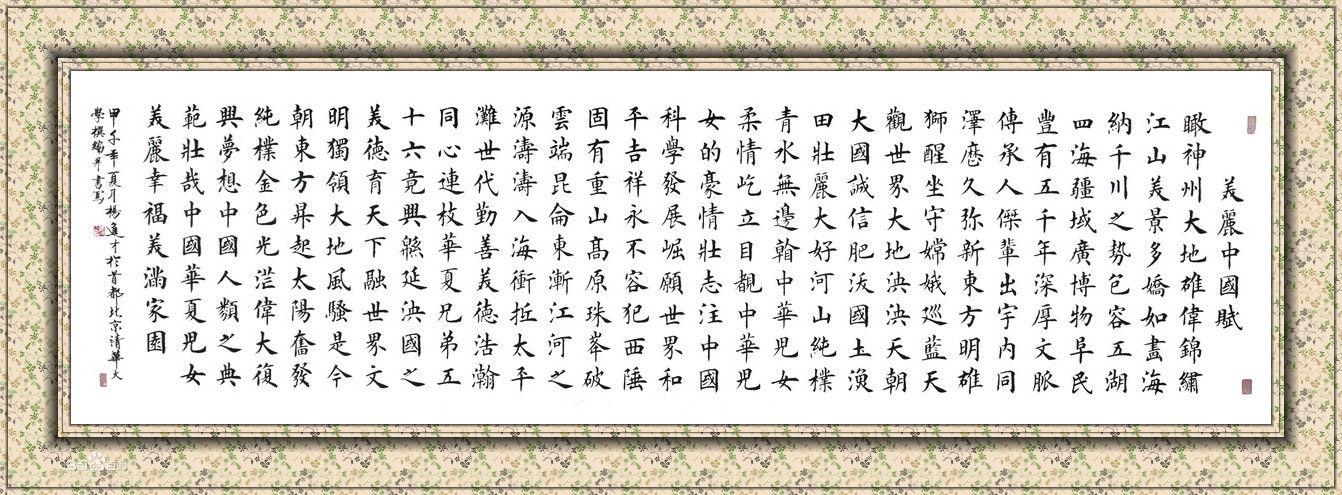 美麗中國賦
瞰神州大地雄偉錦繡
江山美景多嬌如畫海
納千川之勢包容五湖
四海疆域廣博物阜民
豐有五千年深厚文脈
傳承人傑輩出宇內同
澤歷久弥新東方明雄
獅醒坐守嫦娥巡藍天
觀世界大地泱泱天朝
大國誠信肥沃國土漁
田壯麗大好河山純樸
青水無邊翰中華兒女
柔情屹立目覩中華兒
女的豪情壯志注中國
科學發展崛願世界和
平吉祥永不容犯西陲
固有重山高原珠峯破
雲端昆侖東漸江河之
源濤濤入海衝拞太平
灘世代勤善美德浩瀚
同心連枝華夏兄弟五
十六竟興緜延泱國之
美德育天下融世界文
明獨領大地風騷是今
朝東方昇起太陽奮發
純樸金色光芒偉大復
興夢想中國人類之典
範壯哉中國華夏兒女
美麗幸福美滿家園
甲午年夏月楊進才於首都北京清華大
學撰稿并書寫
Bai 百科